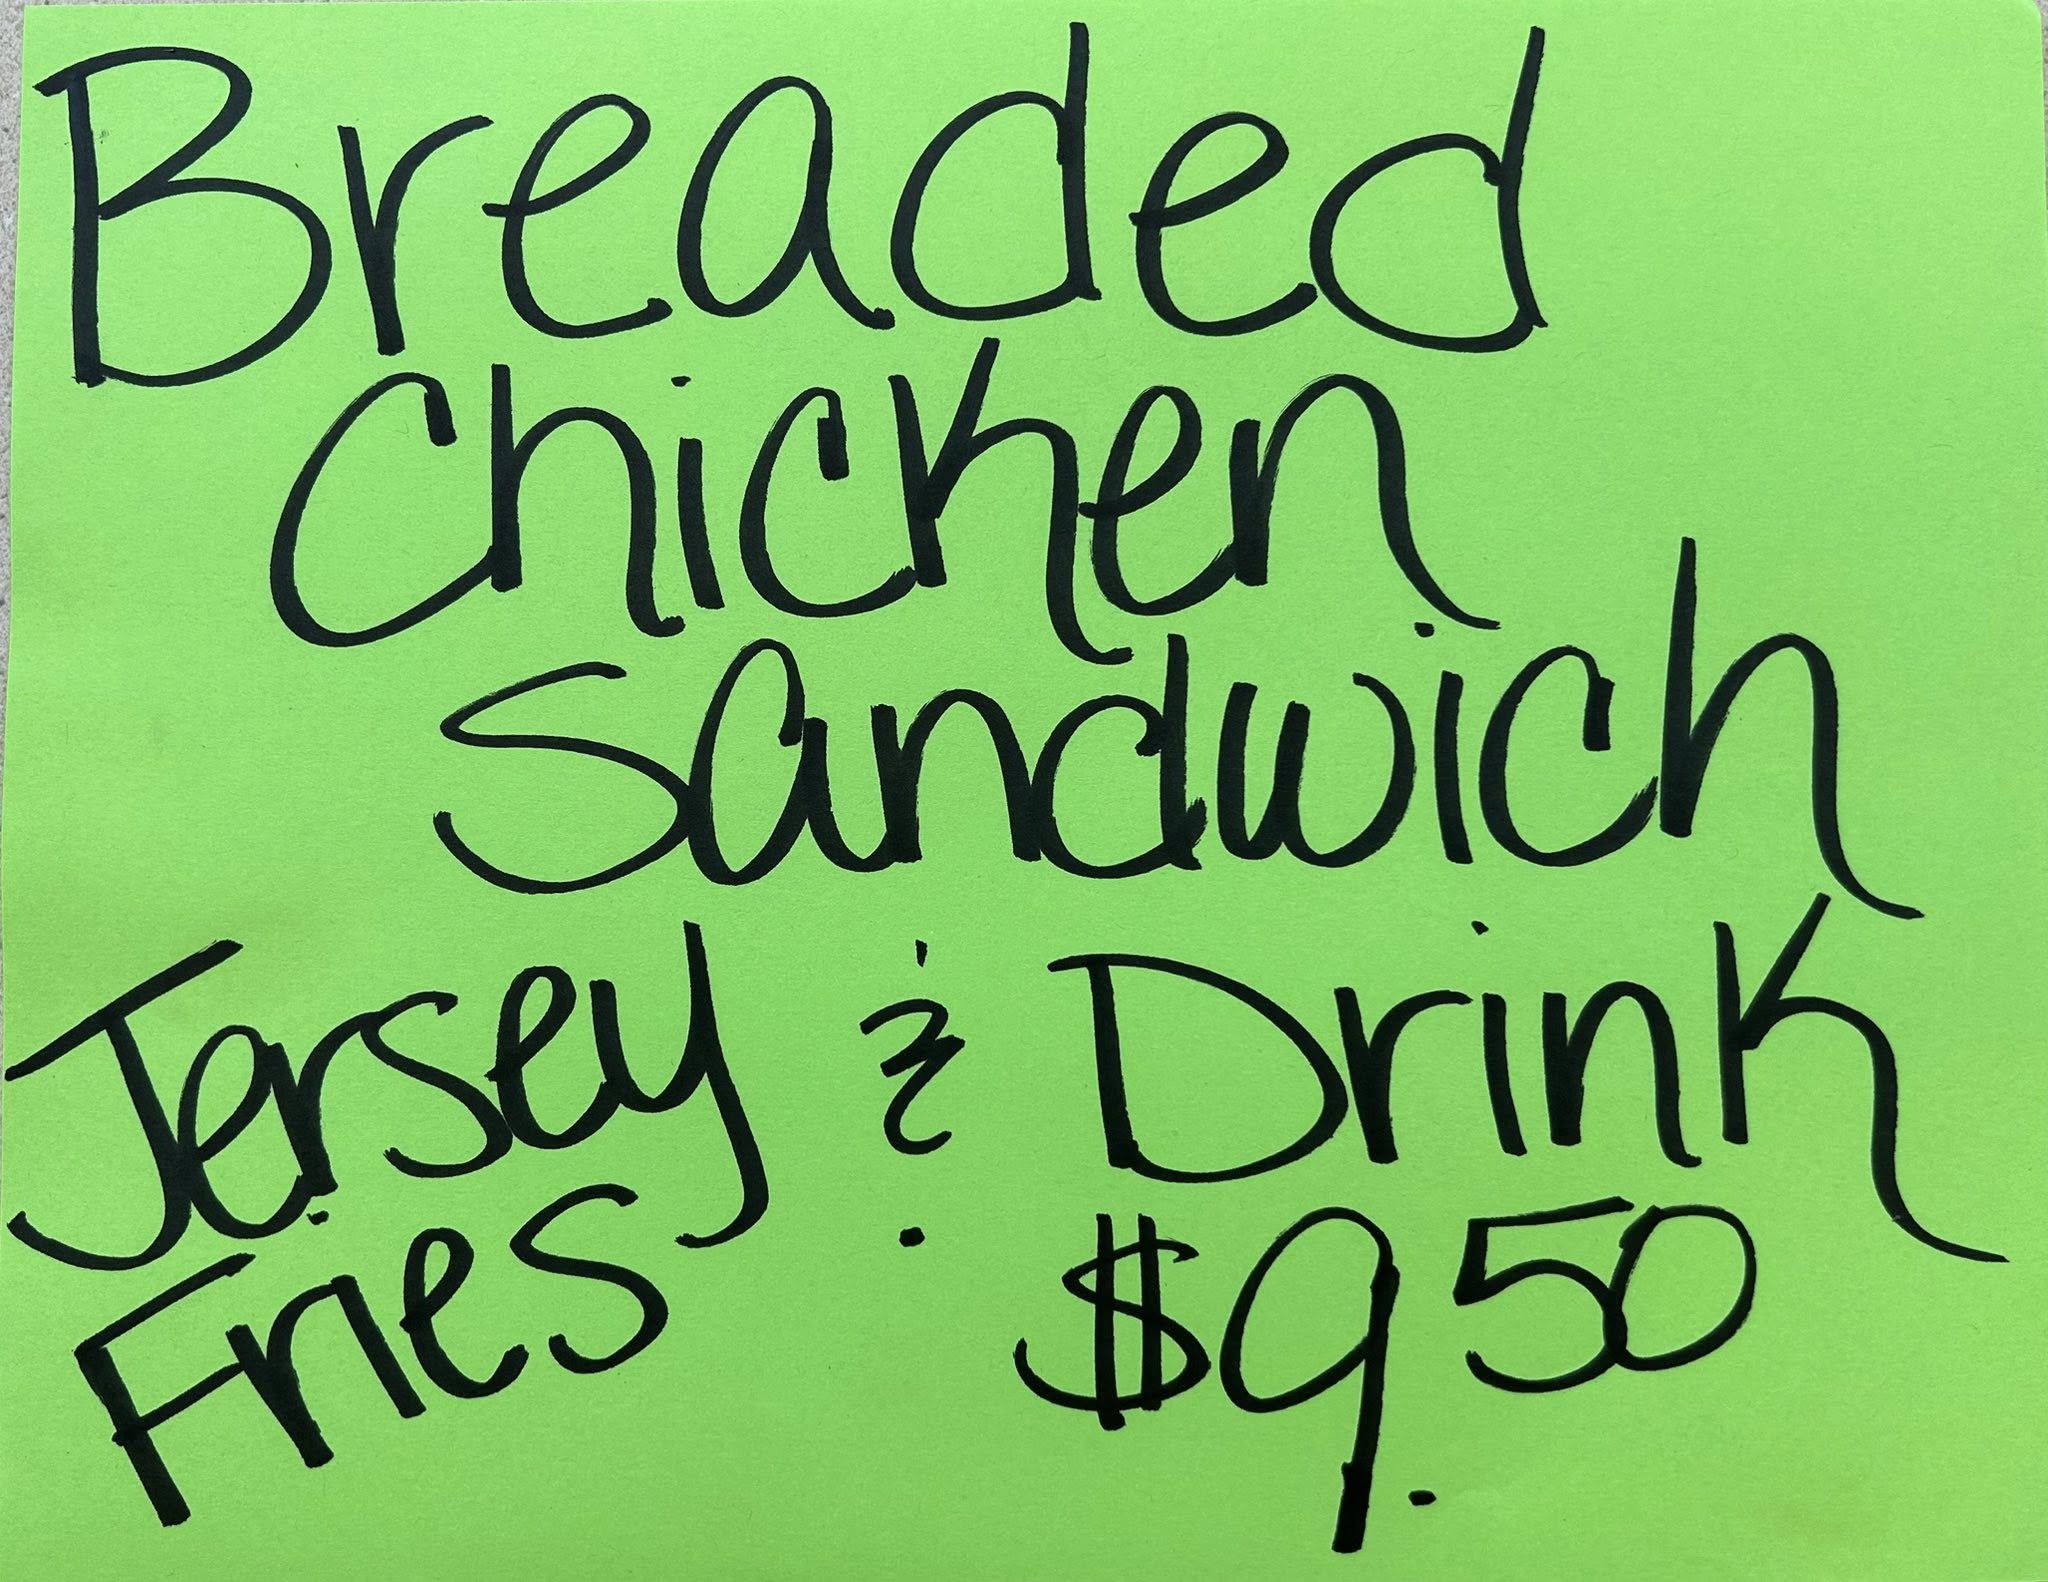 Breaded
Chicken
Sandwich
Jersey & Drink
Fries $9.50